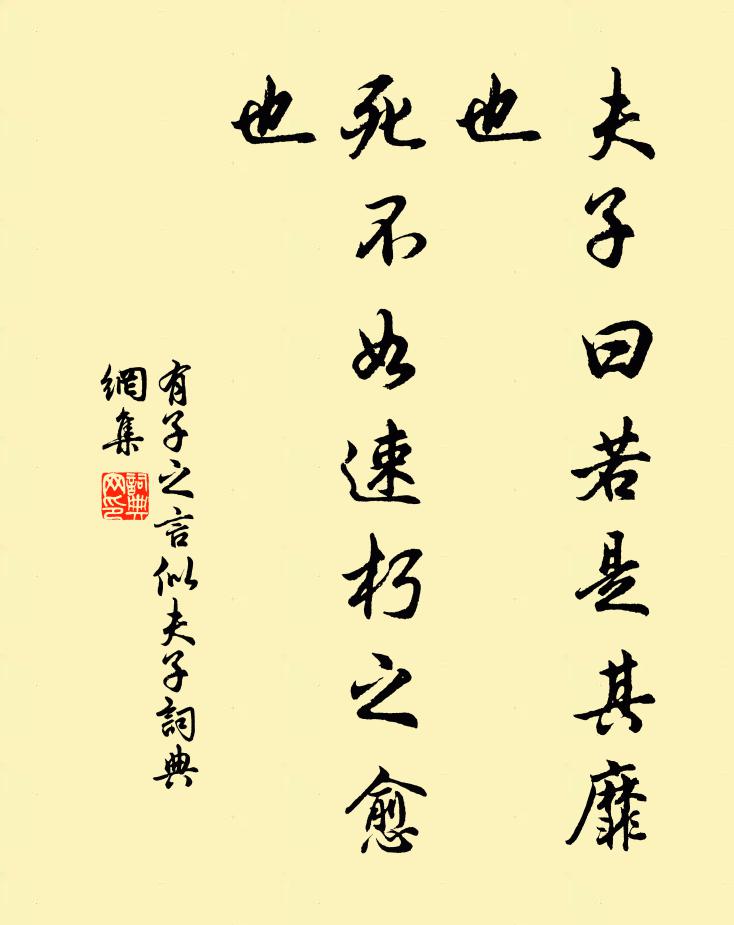 夫子曰若是其靡
也
死不如速朽之愈
也
有子之言似夫子詞典
網集
詞典
网印